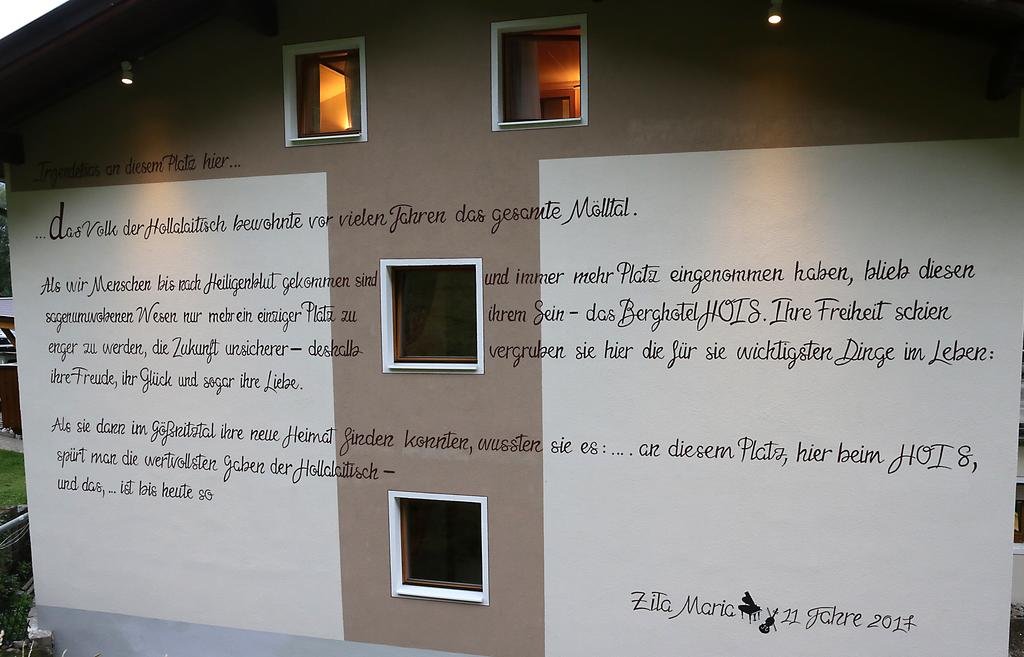 Irgendetwas an diesem Platz hier...
...das Volk der Hollalaitisch bewohnte vor vielen Jahren das gesamte Mölltal.
Als wir Menschen bis nach Heiligenblut gekommen sind und immer mehr Platz eingenommen haben, blieb diesen
sagenumwobenen Wesen nur mehr ein einziger Platz zu ihrem Sein - das Berghotel HOIS. Ihre Freiheit schien
enger zu werden, die Zukunft unsicherer - deshalb vergruben sie hier die für sie wichtigsten Dinge im Leben:
ihre Freude, ihr Glück und sogar ihre Liebe.
Als sie dann im Gößnitztal ihre neue Heimat finden konnten, wussten sie es: .... an diesem Platz, hier beim HOIS,
spürt man die wertvollsten Gaben der Hollalaitisch -
und das, ... ist bis heute so
Zita Maria 11 Jahre 2017